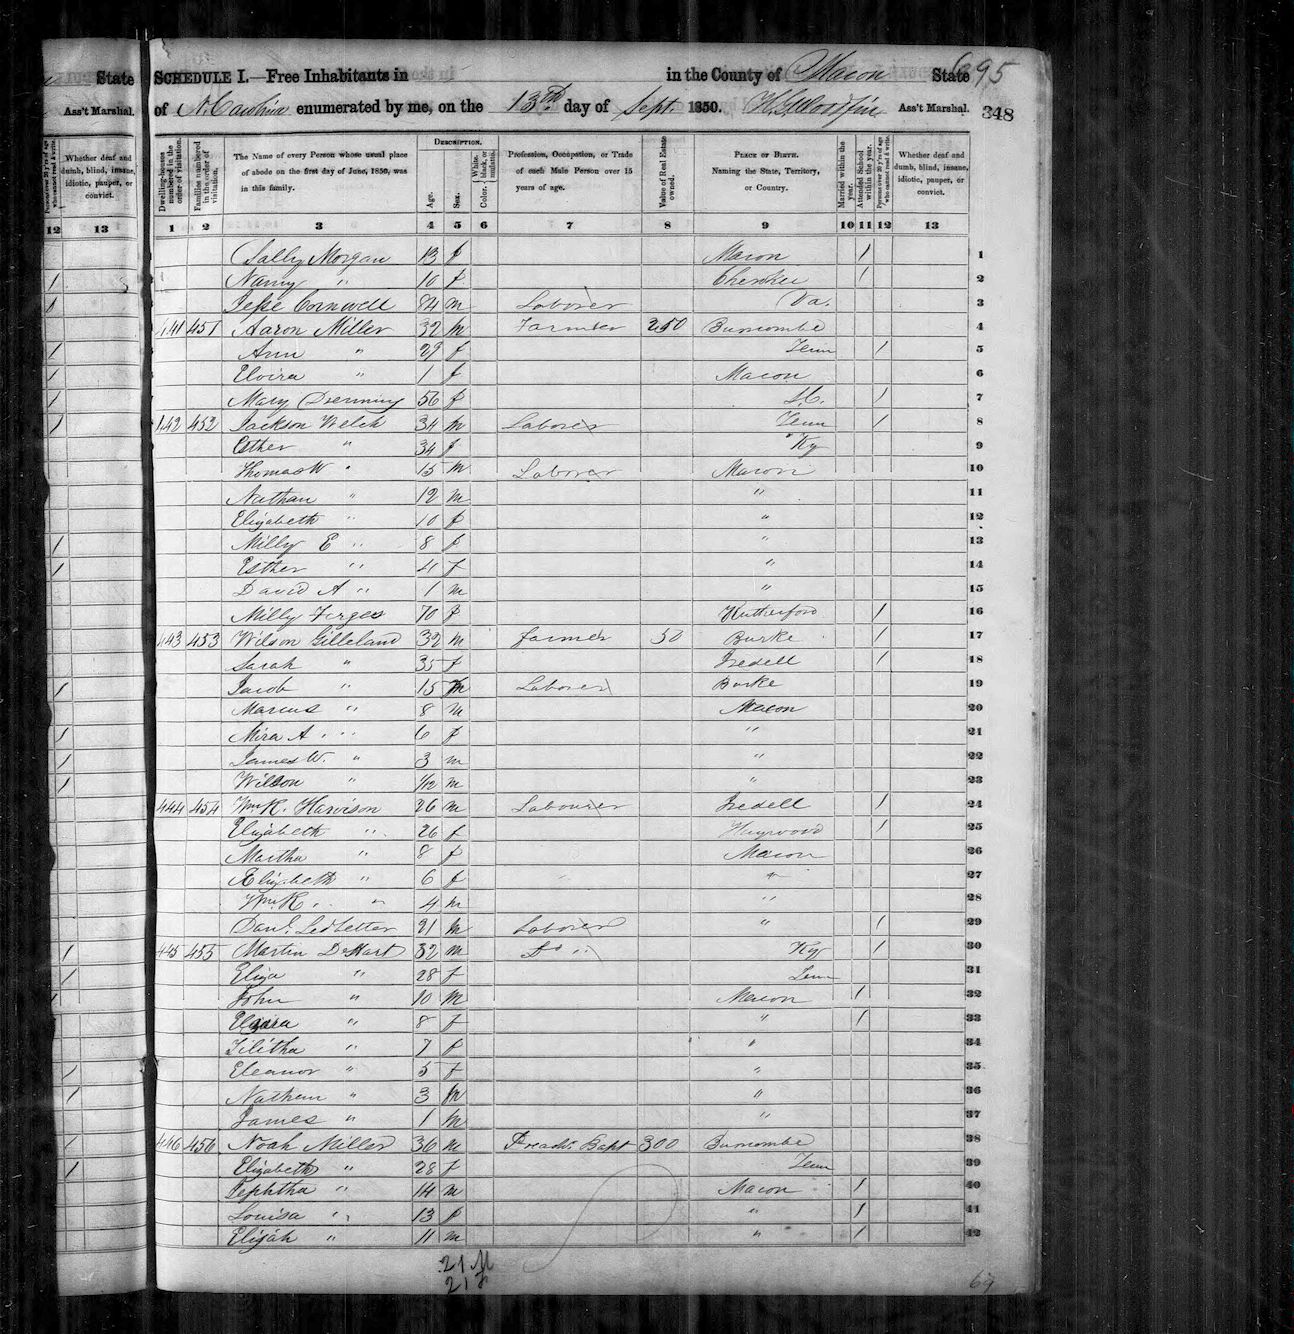 State
Ass't Marshal.
Whether deaf and
dumb, blind, insane,
idiotic, pauper, or
convict.
12 13
SCHEDULE I.—Free Inhabitants in in the County of Macon State
695
of N. Carolina enumerated by me, on the 13th day of Sept. 1850. Ass't Marshal.
348
Dwelling-houses numbered in the order of visitation.
Families numbered in the order of visitation.
The Name of every Person whose usual place of abode on the first day of June, 1850, was in this family.
DESCRIPTION.
Age.
Sex.
Color, White, black, or mulatto.
Profession, Occupation, or Trade of each Male Person over 15 years of age.
Value of Real Estate owned.
PLACE OF BIRTH. Naming the State, Territory, or Country.
Married within the year.
Attended School within the year.
Persons over 20 y'rs of age who cannot read & write.
Whether deaf and dumb, blind, insane, idiotic, pauper, or convict.
1 2 3 4 5 6 7 8 9 10 11 12 13
Sally Morgan 13 f Macon 1 1
Nancy " 10 f Cherokee 1 2
Jesse Cornwell 84 m Laborer Va. 3
441 451 Aaron Miller 32 m Farmer 250 Buncombe 4
Ann " 29 f Tenn 1 5
Elvira " 1 f Macon 6
Mary Denning 56 f S.C. 1 7
442 452 Jackson Welch 34 m Laborer Tenn 1 8
Esther " 34 f Ky 9
Thomas W " 15 m Laborer Macon 10
Nathan " 12 m " 11
Elizabeth " 10 f " 12
Milly E " 8 f " 13
Esther " 4 f " 14
David A " 1 m " 15
Milly Ferges 70 f Rutherford 1 16
443 453 Wilson Gilleland 32 m Farmer 50 Burke 1 17
Sarah " 35 f Iredell 1 18
Jacob " 15 m Laborer Burke 19
Marcus " 8 m Macon 20
Mira A " 6 f " 21
James W. " 3 m " 22
Willson " 1/12 m " 23
444 454 Wm K. Harrison 26 m Labourer Iredell 1 24
Elizabeth " 26 f Haywood 1 25
Martha " 8 f Macon 26
Elizabeth " 6 f " 27
Wm K. " 4 m " 28
Danl. Ledbetter 21 m Laborer " 1 29
445 455 Martin DeHart 32 m Do " Ky 1 30
Eliza " 28 f Tenn 31
John " 10 m Macon 1 32
" 8 f " 1 33
Tilitha " 7 f " 34
Eleanor " 5 f " 35
Nathan " 3 m " 36
James " 1 m " 37
446 456 Noah Miller 36 m Preachr. Bapt 300 Buncombe 38
Elizabeth " 28 f Tenn 39
Jephtha " 14 m Macon 1 40
Louisa " 13 f " 1 41
Elijah " 11 m " 1 42
21 M
21 f
69